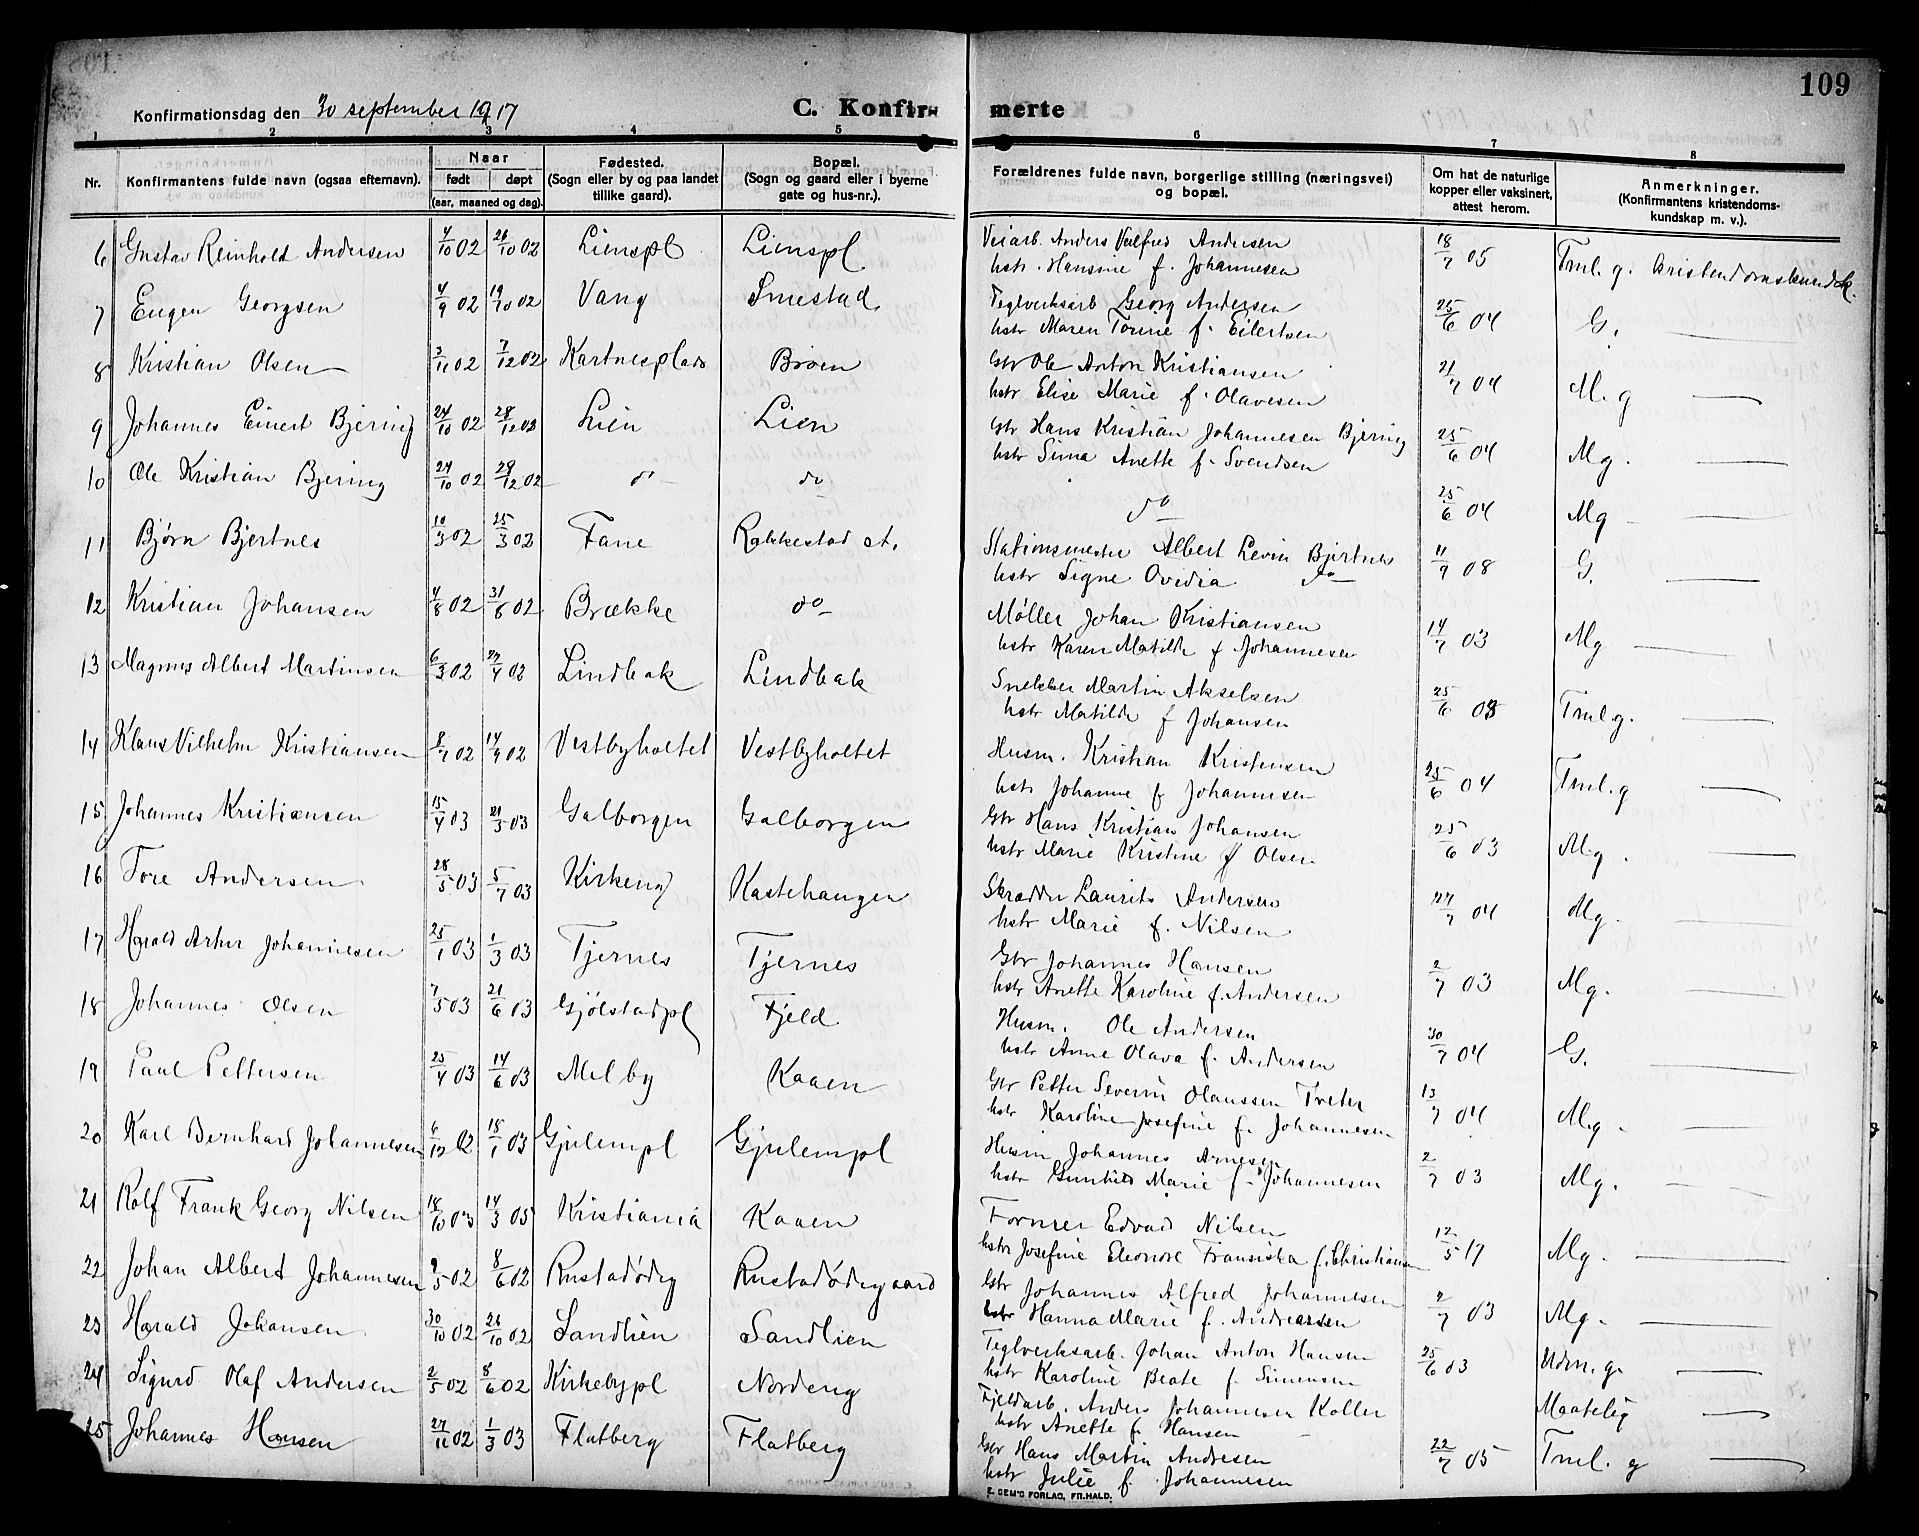 109
Konfirmationsdag den 30 september 1917
C. Konfirmerte
1 2 3 4 5 6 7 8
Nr. Konfirmantens fulde navn (ogsaa efternavn). Naar født døpt (aar, maaned og dag). Fødested. (Sogn eller by og paa landet tillike gaard). Bopæl. (Sogn og gaard eller i byerne gate og hus-nr.). Forældrenes fulde navn, borgerlige stilling (næringsvei) og bopæl. Om hat de naturlige kopper eller vaksinert, attest herom. Anmerkninger. (Konfirmantens kristendomskundskap m. v.).
6 Gustav Reinhold Andersen 4/10 02 26/10 02 Lienspl Lienspl Veiarb. Anders Valfred Andersen 18/7 05 Tml. g. kristendomskundsk.
hstr. Hansine f. Johannesen
7 Eugen Georgsen 4/9 02 19/10 02 Vang Smestad Teglverksarb Georg Andersen 25/6 04 G.
hstr Maren Torine f. Eilertsen
8 Kristian Olsen 3/11 02 7/12 02 Kartnesplads Broen Gbr Ole Anton Kristiansen 21/7 04 M. g
hstr Elise Marie f. Olavesen
9 Johannes Einert Bjering 24/10 02 28/12 02 Lien Lien Gbr Hans Kristian Johannesen Bjering 25/6 04 Mg.
hstr Sina Anette f. Svendsen
10 Ole Kristian Bjering 24/10 02 29/12 02 do do do 25/6 04 Mg
11 Bjørn Bjertnes 10/3 02 25/3 02 Fane Rakkestad st. Stationsmester Albert Levin Bjertnes 11/9 08 G.
hstr Signe Ovidia do
12 Kristian Johansen 4/8 02 31/8 02 Brække do Møller Johan Kristiansen 14/7 03 Mg
hstr Karen Matilde f Johannesen
13 Magnus Albert Martinsen 6/3 02 27/4 02 Lindbak Lindbak Snekker Martin Akselsen 25/6 03 Tmlg.
hstr Matilde f Johansen
14 Klaus Vilhelm Kristiansen 8/7 02 14/9 02 Vestbyholtet Vestbyholtet Husm. Kristian Kristensen 25/6 04 Tml. g
hstr Johanne f Johannesen
15 Johannes Kristiansen 15/4 03 21/5 03 Galborgen Galborgen Gbr Hans Kristian Johansen 25/6 03 Mg.
hstr Marie Kristine f Olsen
16 Tore Andersen 28/5 03 5/7 03 Kirkeng Kastehaugen Skrædder Laurits Andersen 27/7 04 Mg.
hstr Marie f. Nilsen
17 Harald Artur Johannesen 25/1 03 1/3 03 Tjernes Tjernes Gbr Johannes Hansen 2/7 03 Mg.
hstr Anette Karoline f. Andersen
18 Johannes Olsen 7/5 03 21/6 03 Gjølstadpl Fjeld Husm. Ole Andersen 30/7 04 G.
hstr Anne Olava f. Andersen
19 Paul Pettersen 25/4 03 14/6 03 Melby Kaaen Gbr Petter Severin Olaussen Treter 13/7 04 Mg.
hstr Karoline Josefine f. Johannesen
20 Karl Bernhard Johannesen 6/12 02 18/1 03 Gjulempl Gjulempl Husm Johannes Arnesen 2/7 03 Mg.
hstr Gunhild Marie f. Johannesen
21 Rolf Frank Georg Nilsen 18/10 03 14/3 05 Kristiania Kaaen Former Edvard Nilsen 12/5 17 Mg.
hstr Josefine Eleonore Fransiska f. Christiansen
22 Johan Albert Johannesen 9/5 02 8/6 02 Rustadødeg Rustadødegaard Gbr Johannes Alfred Johannesen 2/7 03 Mg.
hstr Hanna Marie f. Andreassen
23 Harald Johansen 30/10 02 26/10 02 Sandlien Sandlien Teglverksarb. Johan Anton Hansen 25/6 03 Udm. g.
hstr Karoline Beate f Simensen
24 Sigurd Olaf Andersen 2/5 02 8/6 02 Kirkebypl Nordeng Fjeldarb. Anders Johannesen Koller Maatelig
hstr Anette f. Hansen
25 Johannes Hansen 27/11 02 1/3 03 Flatberg Flatberg Gbr Hans Martin Andresen 22/7 05 Tml. g
hstr Julie f. Johannesen
E. SEM'S FORLAG, FR.HALD.